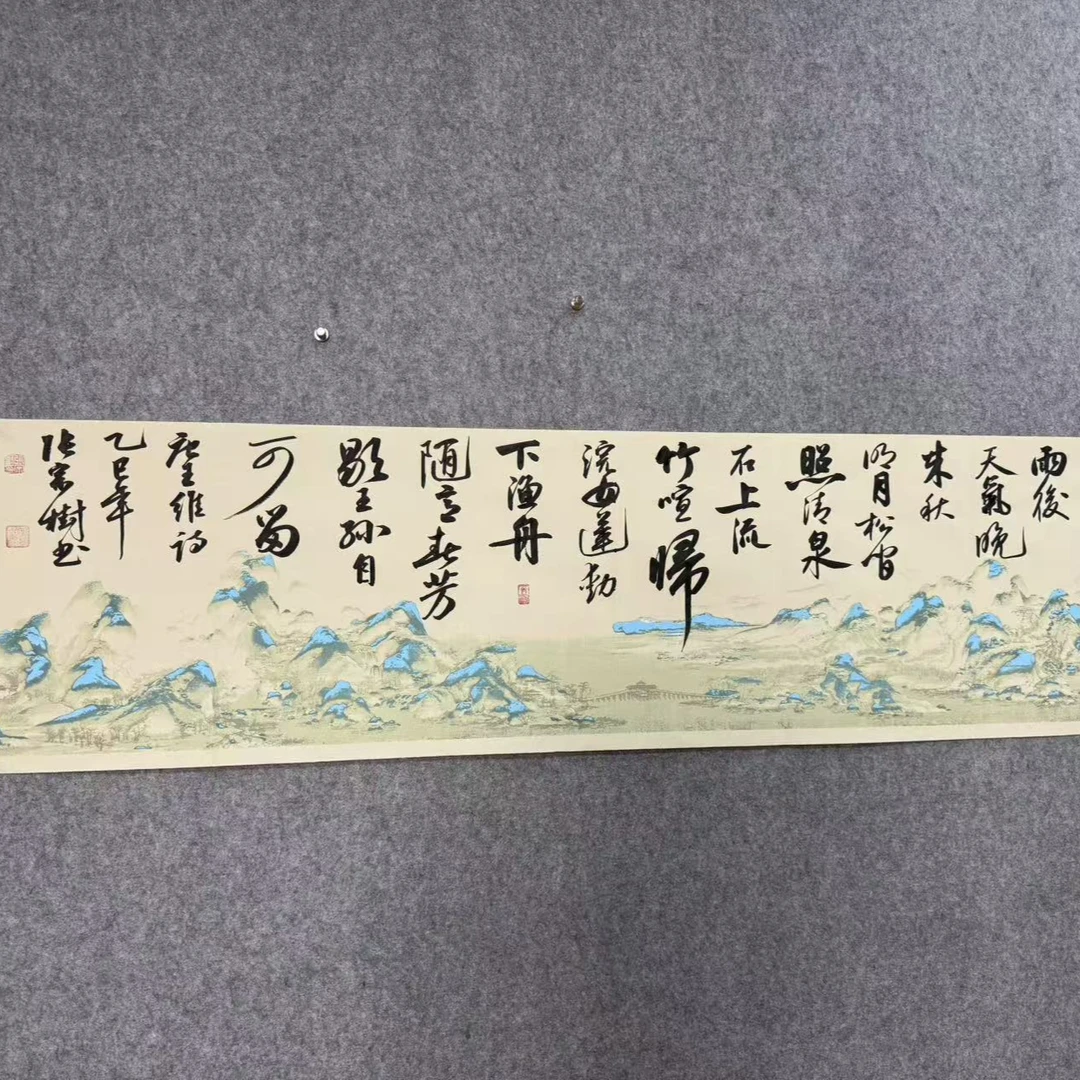 雨後
天氣晚
来秋
明月松間
照清泉
石上流
竹喧歸
浣女蓮動
下漁舟
随意春芳
歇王孫自
可留
唐王維詩
乙巳年
張樹书